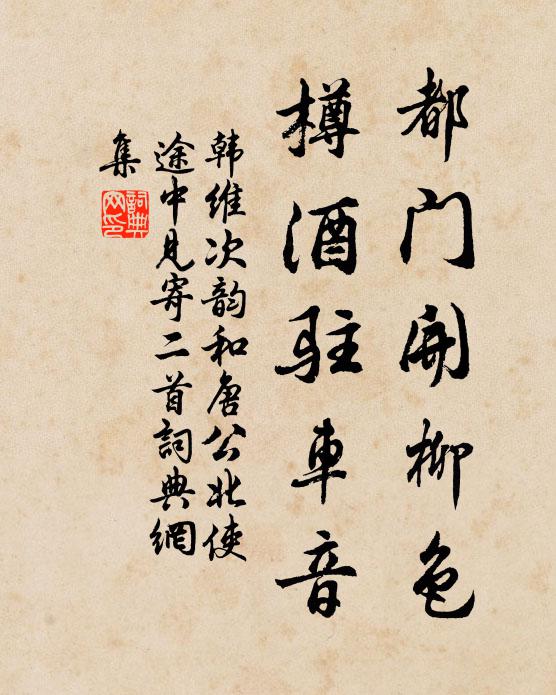 都门開柳色
樽酒駐車音
韩维次韵和唐公北使
途中見寄二首詞典網
集
詞典
网印